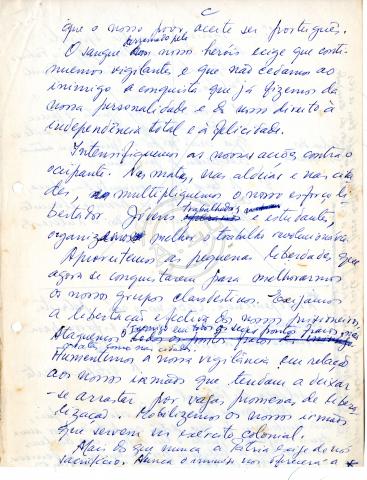 C
que o nosso povo aceite ser português.
O sangue derramado pelos nossos heróis exige que conti-
nuemos vigilantes e que não cedamos ao
inimigo a conquista que já fizemos da
nossa personalidade e do nosso direito à
independência total e à felicidade.
Intensifiquemos as nossas acções contra o
ocupante. Nas matas, nas aldeias e nas cida
des, multipliquemos o nosso esforço li-
bertador. Jovens trabalhadores e estudantes,
organizemos melhor o trabalho revolucionário.
Aproveitemos as pequenas liberdades que
agora se conquistaram para melhorarmos
os nossos grupos clandestinos. Exijamos
a libertação efectiva dos nossos prisioneiros.
Ataquemos o inimigo em todos os seus pontos fracos,
matas como nas cidades.
Aumentemos a nossa vigilância em relação
aos nossos irmãos que tendam a deixar
-se arrastar por vagas promessas de
Mobilizemos os nossos irmãos
que servem no exército colonial.
Mais do que nunca a Pátria exige de nós
sacrifícios. Nunca o inimigo nos oferecera a